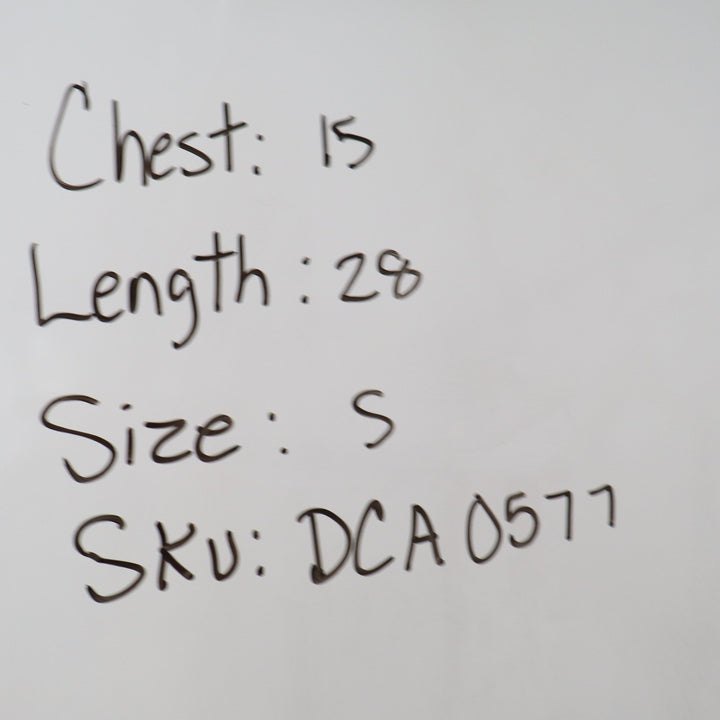 Chest: 15
Length: 28
Size: S
SKU: DCA0577